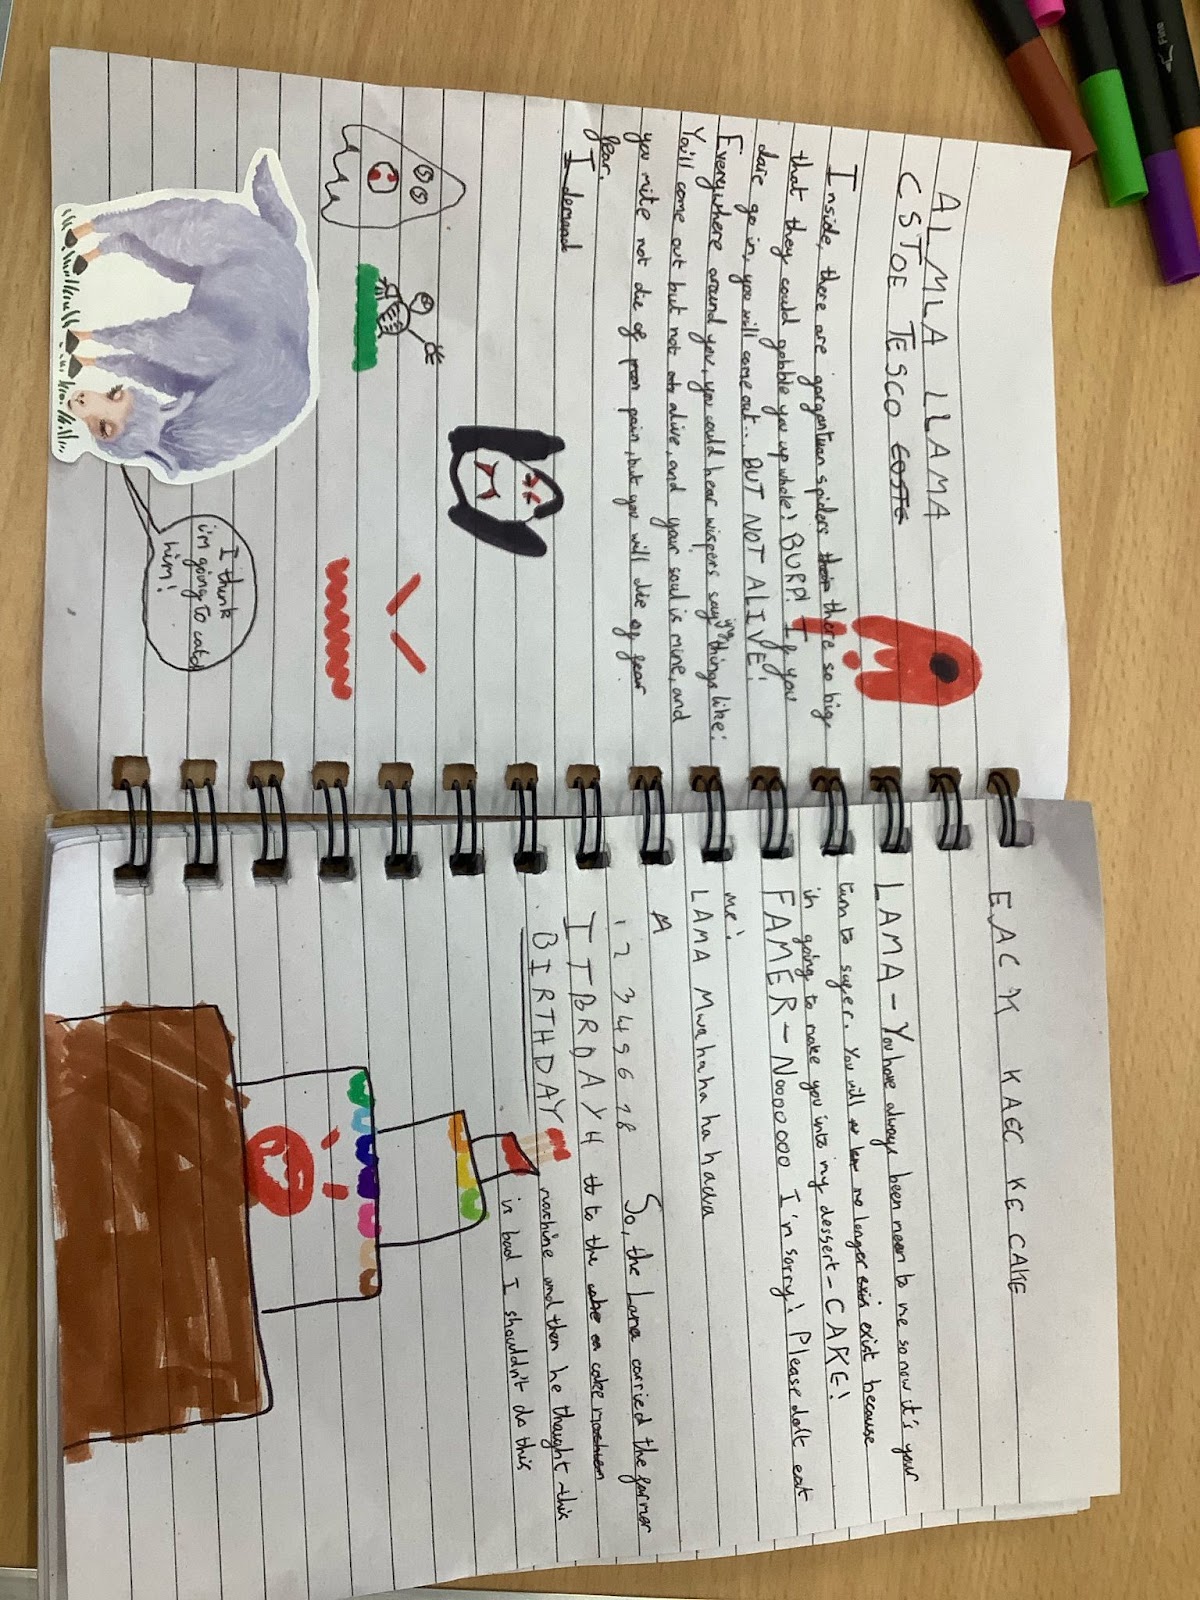 ALMLA LLAMA
CSTOE TESCO COSTE
Inside, there are gargantuan spiders their there so big
that they could gobble you up whole! BURP! If you
dare go in, you will come out... BUT NOT ALIVE!
Everywhere around you, you could hear wispers saying things like:
You'll come out but not ali alive, and your soul is mine, and
you mite not die of pain, but you will die of fear
fear.
I demand
I think
i'm going to catch
him!
EACK KAEC KE CAKE
LAMA - You have always been mean to me so now it's your
turn to suffer. You will no longer exist because
im going to make you into my dessert - CAKE!
FAMER - Nooooooo I'm sorry! Please don't eat
me!
LAMA Mwahahahahaha
M
1 2 3 4 9 6 7 8 So, the Lama carried the farmer
ITBRDAYH to to the cake machine
BIRTHDAY machine and then he thought this
is bad I shouldn't do this